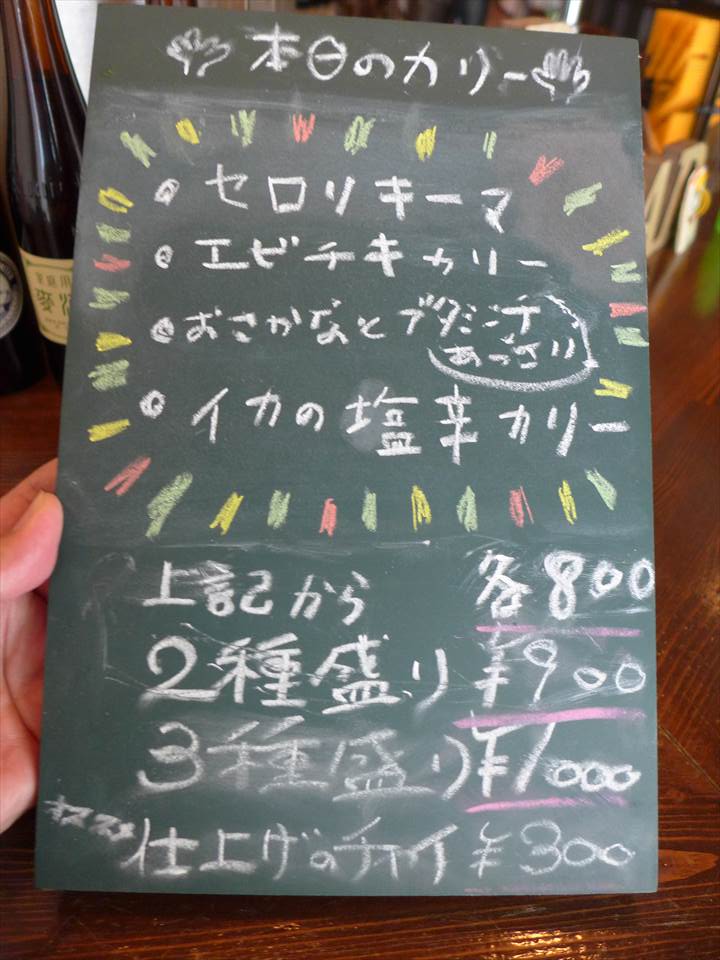 本日のカリー
・セロリキーマ
・エビチキカリー
・おさかなとブタミンチ
あっさり
・イカの塩辛カリー
上記から 各800
2種盛り ¥900
3種盛り ¥1000
オススメ 仕上げのチャイ ¥300